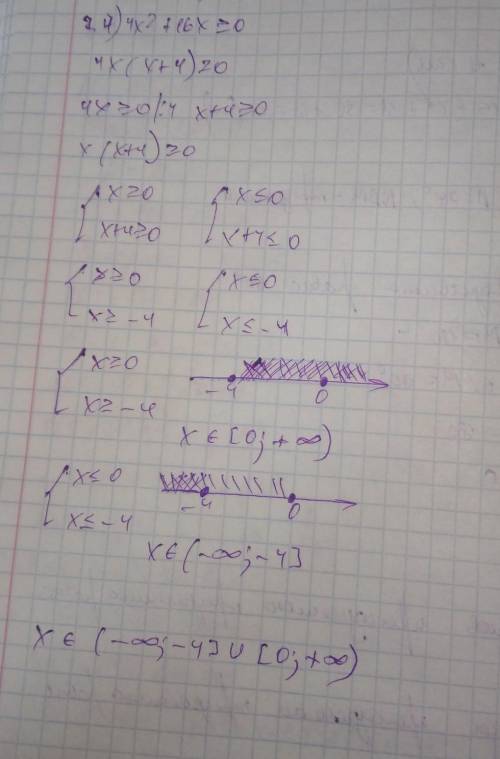 2.4) 4x² + 16x ≥ 0
4x(x+4) ≥ 0
4x ≥ 0 |:4 x+4 ≥ 0
x(x+4) ≥ 0
{ x ≥ 0 { x ≤ 0
{ x+4 ≥ 0 { x+4 ≤ 0
{ x ≥ 0 { x ≤ 0
{ x ≥ -4 { x ≤ -4
{ x ≥ 0
{ x ≥ -4
-4 0
x ∈ [0; +∞)
{ x ≤ 0
{ x ≤ -4
-4 0
x ∈ (-∞; -4]
x ∈ (-∞; -4] ∪ [0; +∞)